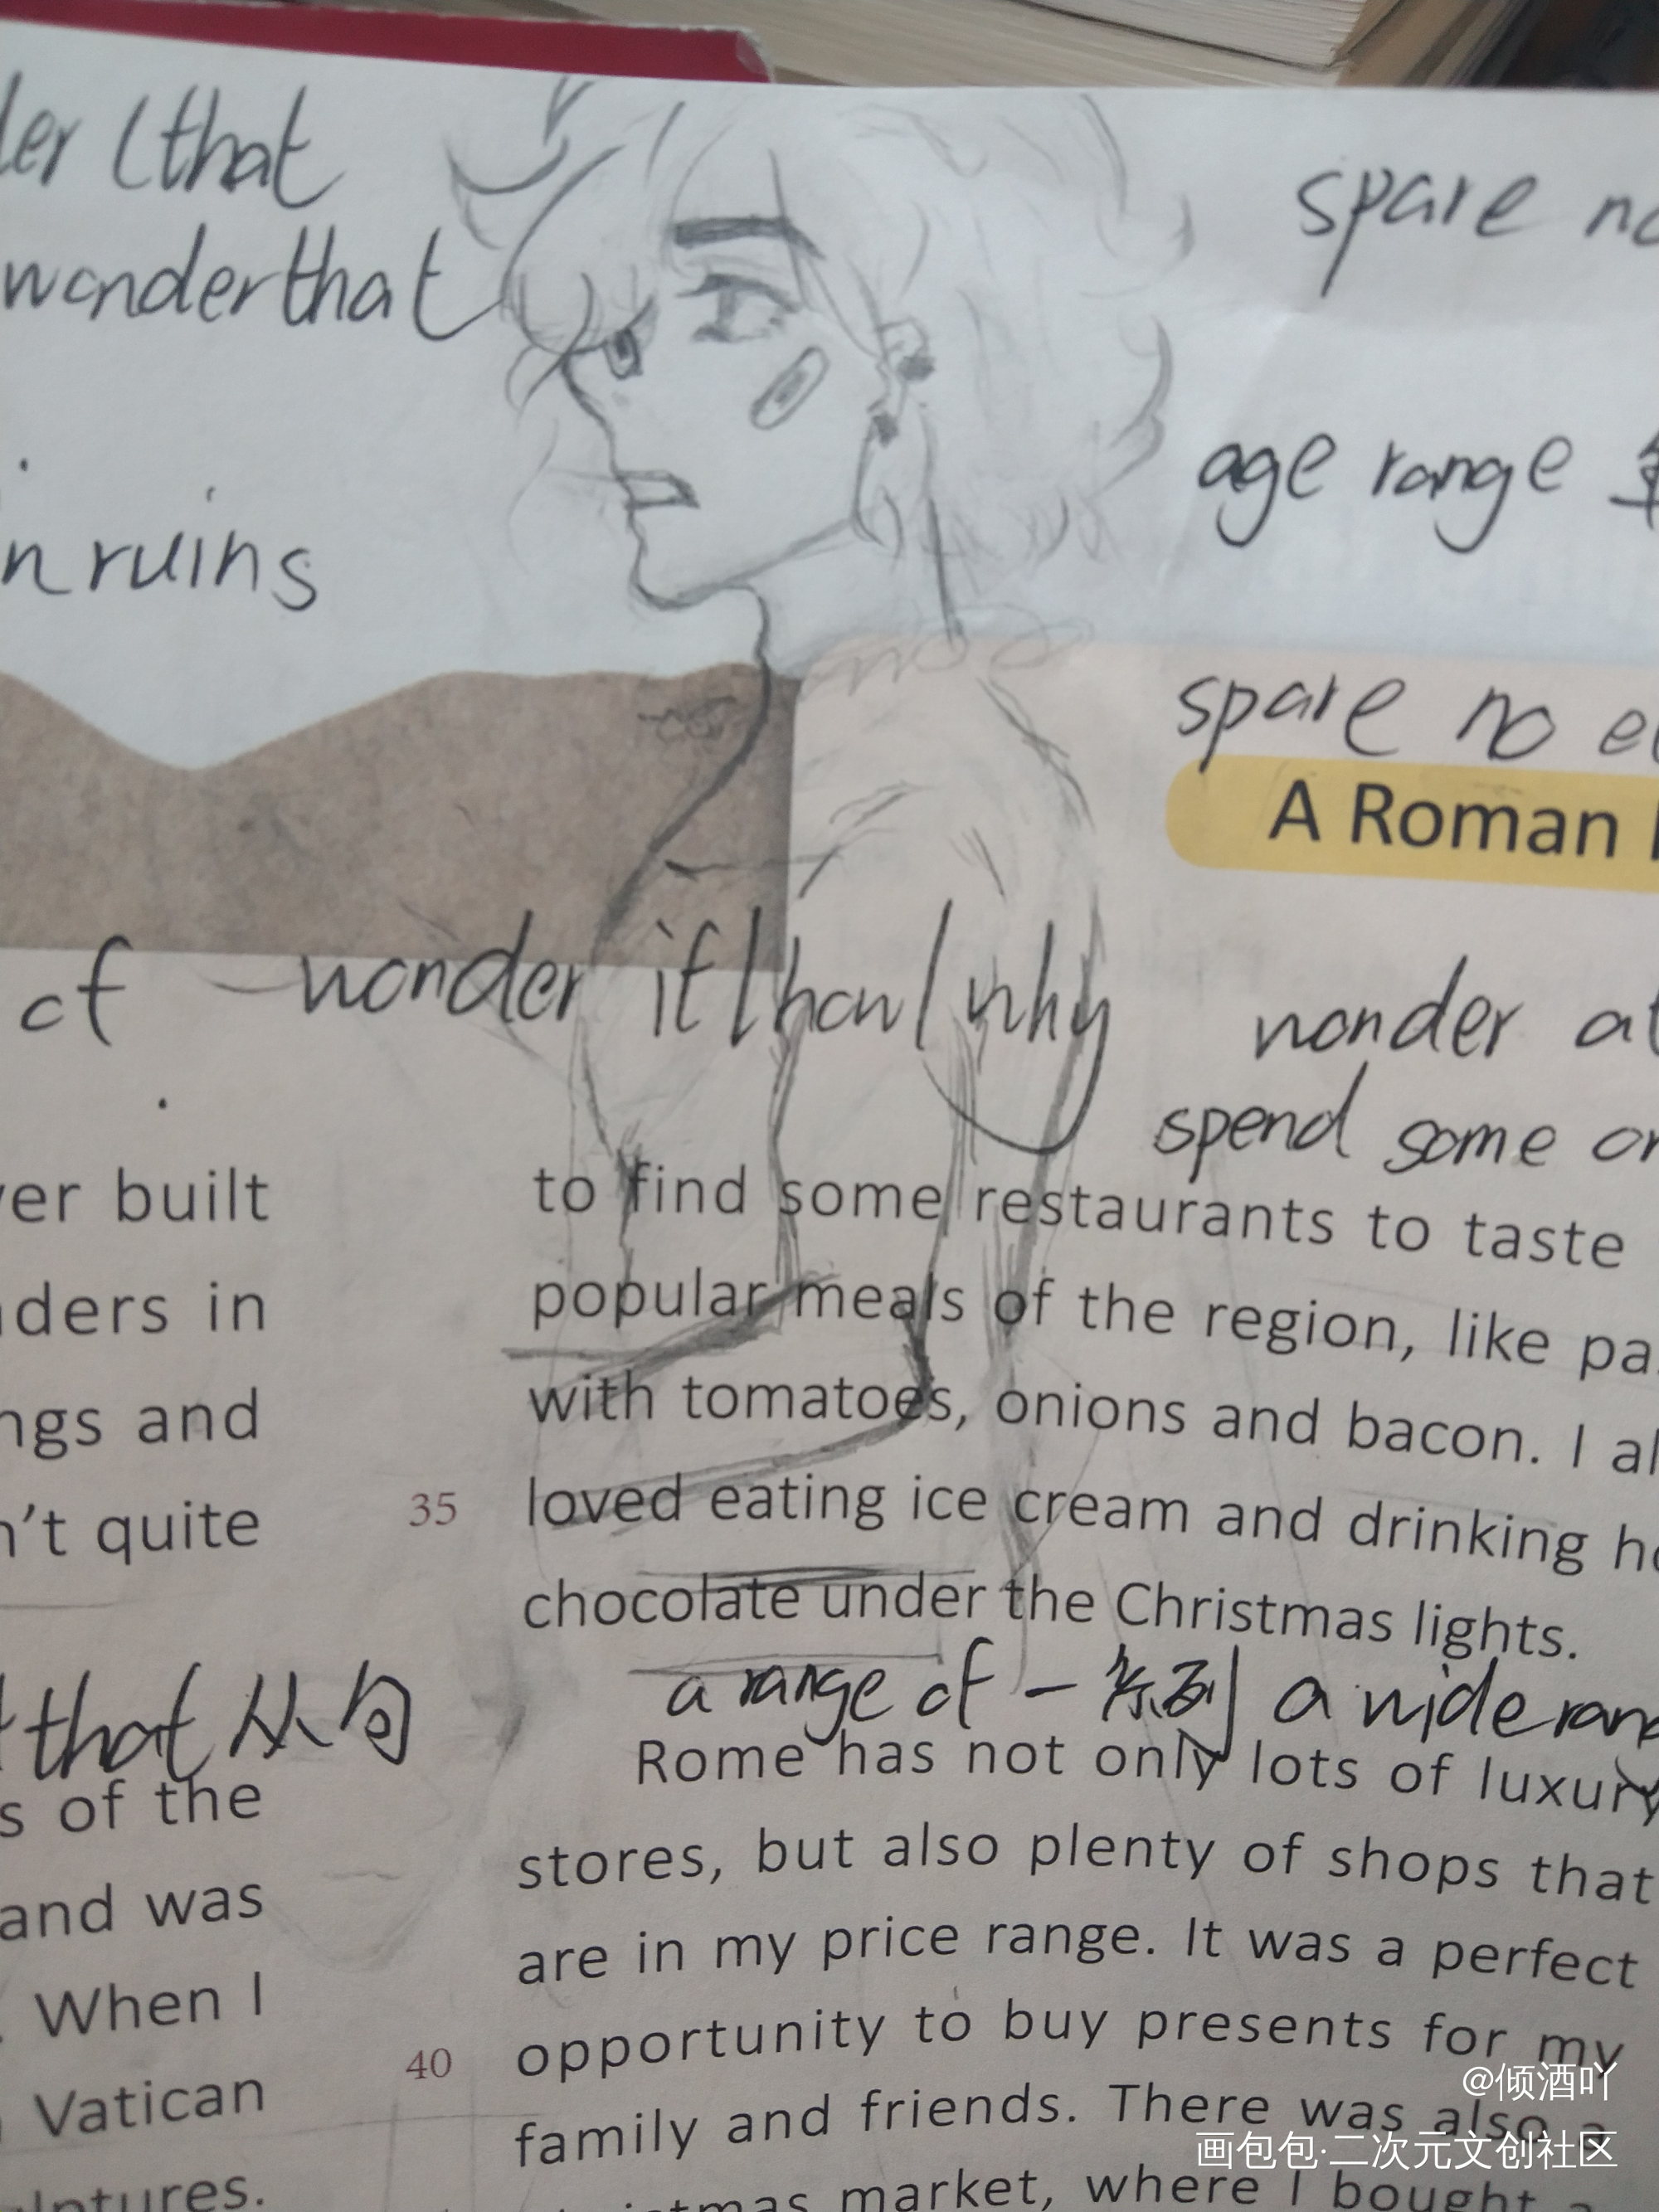 (that
wonderthat
n ruins
spare
age range
spare no
A Roman
of wonder if/how/why
wonder
spend some
built
in
and
quite
that 从句
of the
and was
When I
Vatican
to find some restaurants to taste
popular meals of the region, like
with tomatoes, onions and bacon. I
35 loved eating ice cream and drinking
chocolate under the Christmas lights.
a range of 一系列 a wide
Rome has not only lots of luxury
stores, but also plenty of shops that
are in my price range. It was a perfect
40 opportunity to buy presents for my
family and friends. There was also a
market, where I bought a
@倾酒吖
画包包·二次元文创社区